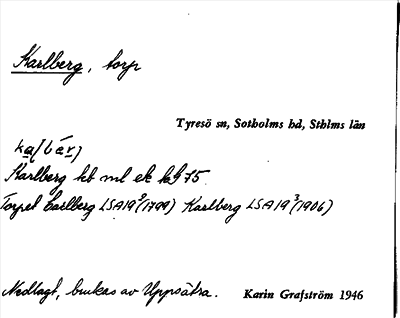 Karlberg, torp
Tyresö sn, Sotholms hd, Sthlms län
Karlberg hb ml ek bl 75
Torpet Carlberg LSA19 (1799) Karlberg LSA19 (1906)
Nedlagt, brukas av Uppsätra. Karin Grafström 1946